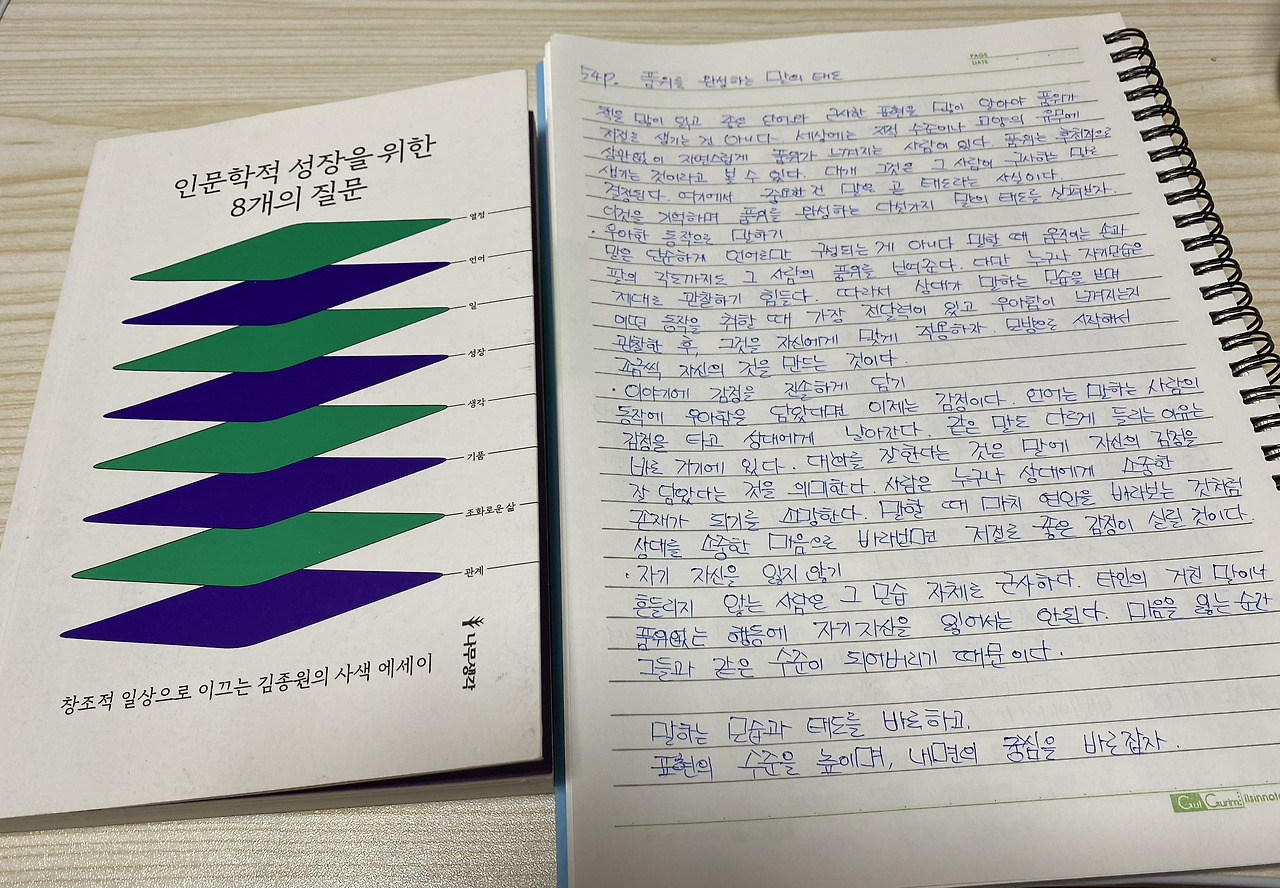 인문학적 성장을 위한
8개의 질문
열정
언어
일
성장
생각
기품
조화로운 삶
관계
나무생각
창조적 일상으로 이끄는 김종원의 사색 에세이
PAGE
DATE
54p. 품위를 완성하는 말의 태도
책을 많이 읽고 좋은 단어와 근사한 표현을 많이 알아야 품위가
저절로 생기는 건 아니다. 세상에는 지적 수준이나 교양의 유무에
상관없이 자연스럽게 품위가 느껴지는 사람이 있다. 품위는 후천적으로
생기는 것이라고 볼 수 있다. 대개 그것은 그 사람이 구사하는 말로
결정된다. 여기에서 중요한 건 말은 곧 태도라는 사실이다.
이것을 기억하며 품위를 완성하는 다섯가지 말의 태도를 살펴보자.
· 우아한 동작으로 말하기
말은 단순하게 언어로만 구성되는 게 아니다 말할 때 움직이는 손과
팔의 각도까지도 그 사람의 품위를 보여준다. 다만 누구나 자기모습은
제대로 관찰하기 힘들다. 따라서 상대가 말하는 모습을 보며
어떤 동작을 취할 때 가장 전달력이 있고 우아함이 느껴지는지
관찰한 후, 그것을 자신에게 맞게 적용하자 모방으로 시작해서
조금씩 자신의 것을 만드는 것이다.
· 이야기에 감정을 진솔하게 담기
동작에 우아함을 담았다면 이제는 감정이다. 언어는 말하는 사람의
감정을 타고 상대에게 날아간다. 같은 말도 다르게 들리는 이유는
바로 거기에 있다. 대화를 잘한다는 것은 말에 자신의 감정을
잘 담았다는 것을 의미한다. 사람은 누구나 상대에게 소중한
존재가 되기를 소망한다. 말할 때 마치 연인을 바라보는 것처럼
상대를 소중한 마음으로 바라본다면 저절로 좋은 감정이 실릴 것이다.
· 자기 자신을 잃지 않기
흔들리지 않는 사람은 그 모습 자체로 근사하다. 타인의 거친 말이나
품위없는 행동에 자기자신을 잃어서는 안된다. 마음을 잃는 순간
그들과 같은 수준이 되어버리기 때문이다.
말하는 모습과 태도를 바로하고,
표현의 수준을 높이며, 내면의 중심을 바로잡자.
Gul Gurim: ilsinnote